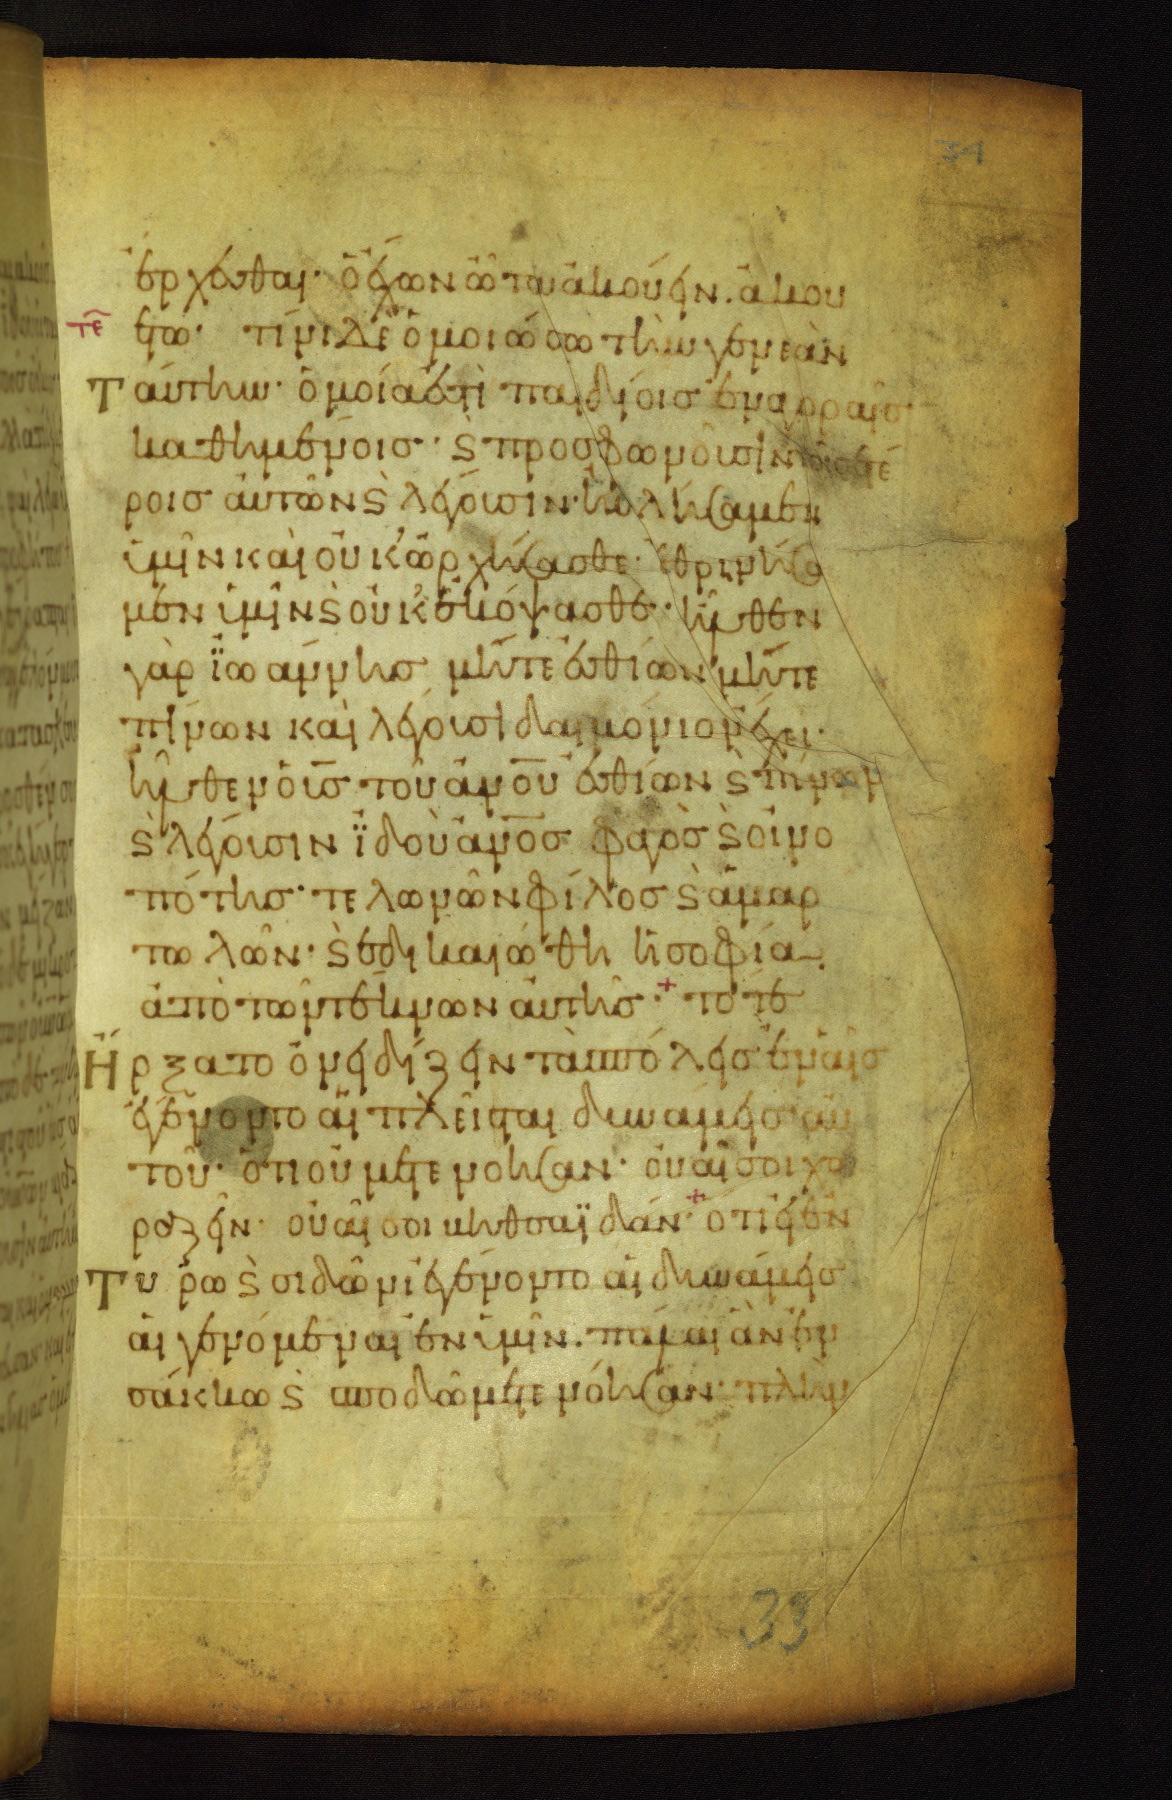 34
ἔρχεσθαι· ὁ ἔχων ὦτα ἀκούειν. ἀκου
τε
έτω· τίνι δὲ ὁμοιώσω τὴν γενεὰν
Ταύτην· ὁμοία ἐστὶ παιδίοισ ἐν ἀγοραῖσ
καθημένοισ· ϗ προσφωνοῦσιν τοῖσ ἑτέ
ροισ αὐτῶν ϗ λέγουσιν· ηὐλήσαμεν
ὑμῖν καὶ οὐκ ὠρχήσασθε· ἐθρηνήσα
μεν ὑμῖν ϗ οὐκ ἐκόψασθε· ἦλθεν
γὰρ ϊωάννησ μήτε ἐσθίων μήτε
πίνων καὶ λέγουσι δαιμόνιον ἔχει·
ἦλθεν ὁ υἱ̅σ τοῦ ἀν̅ου ἐσθίων ϗ πίνων
ϗ λέγουσιν ϊδοὺ ἀν̅οσ φαγὸσ ϗ οἰνο
πότησ· τελωνῶν φίλοσ ϗ ἁμαρ
τωλῶν· ϗ ἐδικαιώθη ἡ σοφία
ἀπὸ τῶν τέκνων αὐτῆσ·+ τότε
Ἤρξατο ὀνειδίζειν τὰσ πόλεισ ἐν αἷσ
ἐγένοντο αἱ πλεῖσται δυνάμεισ αὐ
τοῦ· ὅτι οὐ μετενόησαν· οὐαί σοι χο
ραζεῖν· οὐαί σοι βηθσαϊδάν·+ ὅτι εἰ ἐν
Τύρω ϗ σιδῶνι ἐγένοντο αἱ δυνάμεισ
αἱ γενόμεναι ἐν ὑμῖν. πάλαι ἂν ἐν
σάκκω ϗ σποδῶ μετενόησαν· πλὴν
33